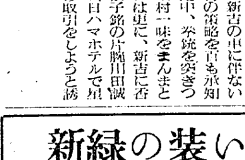 新吉の車に伴ない
の策略を百も承知
中、拳銃を突きつ
村一味をまんまと
は更に、新吉に香
子銘の片腕川田誠
日ハマホテルで足
取引をしようと誘
新緑の装い